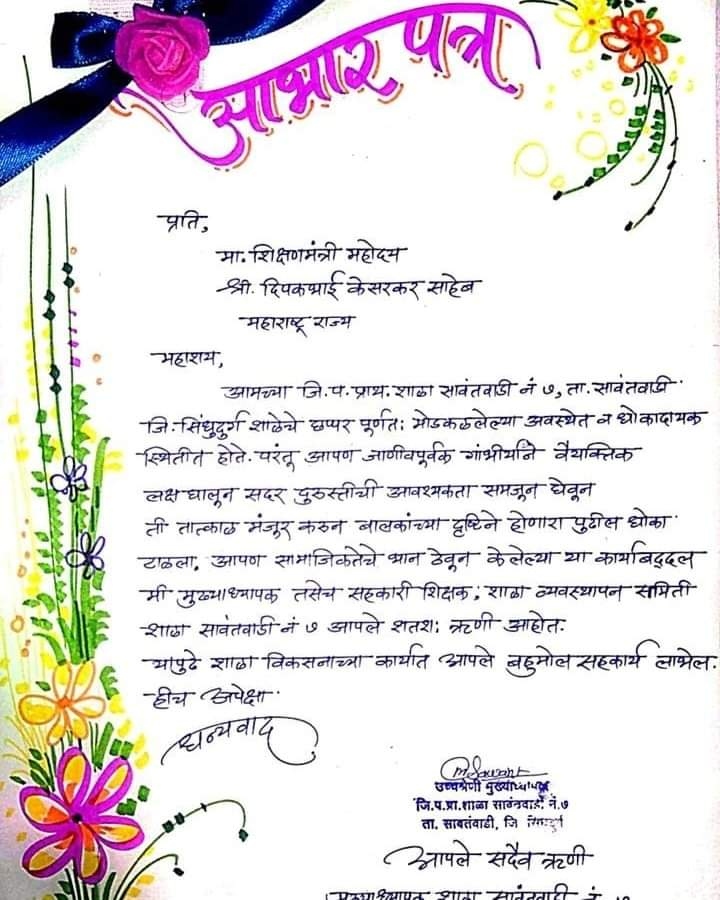 आभार पत्र
प्रति,
मा. शिक्षणमंत्री महोदय
श्री. दिपकभाई केसरकर साहेब
महाराष्ट्र राज्य
महाशय,
आमच्या जि.प.प्राथ. शाळा सावंतवाडी नं ७, ता. सावंतवाडी
जि. सिंधुदुर्ग शाळेचे छप्पर पूर्णतः मोडकळलेल्या अवस्थेत व धोकादायक
स्थितीत होते. परंतू आपण जाणीवपूर्वक गांभीर्याने वैयक्तिक
लक्ष घालून सदर दुरुस्तीची आवश्यकता समजून घेवून
ती तात्काळ मंजूर करुन बालकांच्या दृष्टिने होणारा पुढील धोका
टाळला. आपण सामाजिकतेचे भान ठेवून केलेल्या या कार्याबद्दल
मी मुख्याध्यापक तसेच सहकारी शिक्षक; शाळा व्यवस्थापन समिती
शाळा सावंतवाडी नं ७ आपले शतशः ऋणी आहोत.
यापुढे शाळा विकसनाच्या कार्यात आपले बहुमोल सहकार्य लाभेल.
हीच अपेक्षा.
धन्यवाद
उच्चश्रेणी मुख्याध्यापक
जि.प.प्रा.शाळा सावंतवाडी नं.७
ता. सावंतवाडी, जि सिंधुदुर्ग
आपले सदैव ऋणी
मुख्याध्यापक शाळा सावंतवाडी नं ७